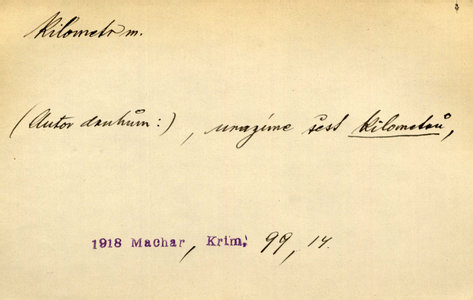 Kilometr m.
(Autor druhům:), urazíme šest kilometrů,
1918 Machar, Krim. 99, 14.